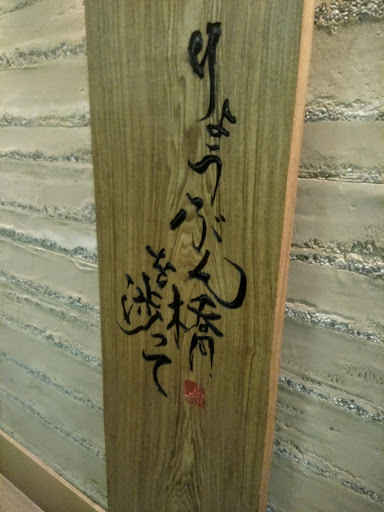 りょうぶん橋
を渡って